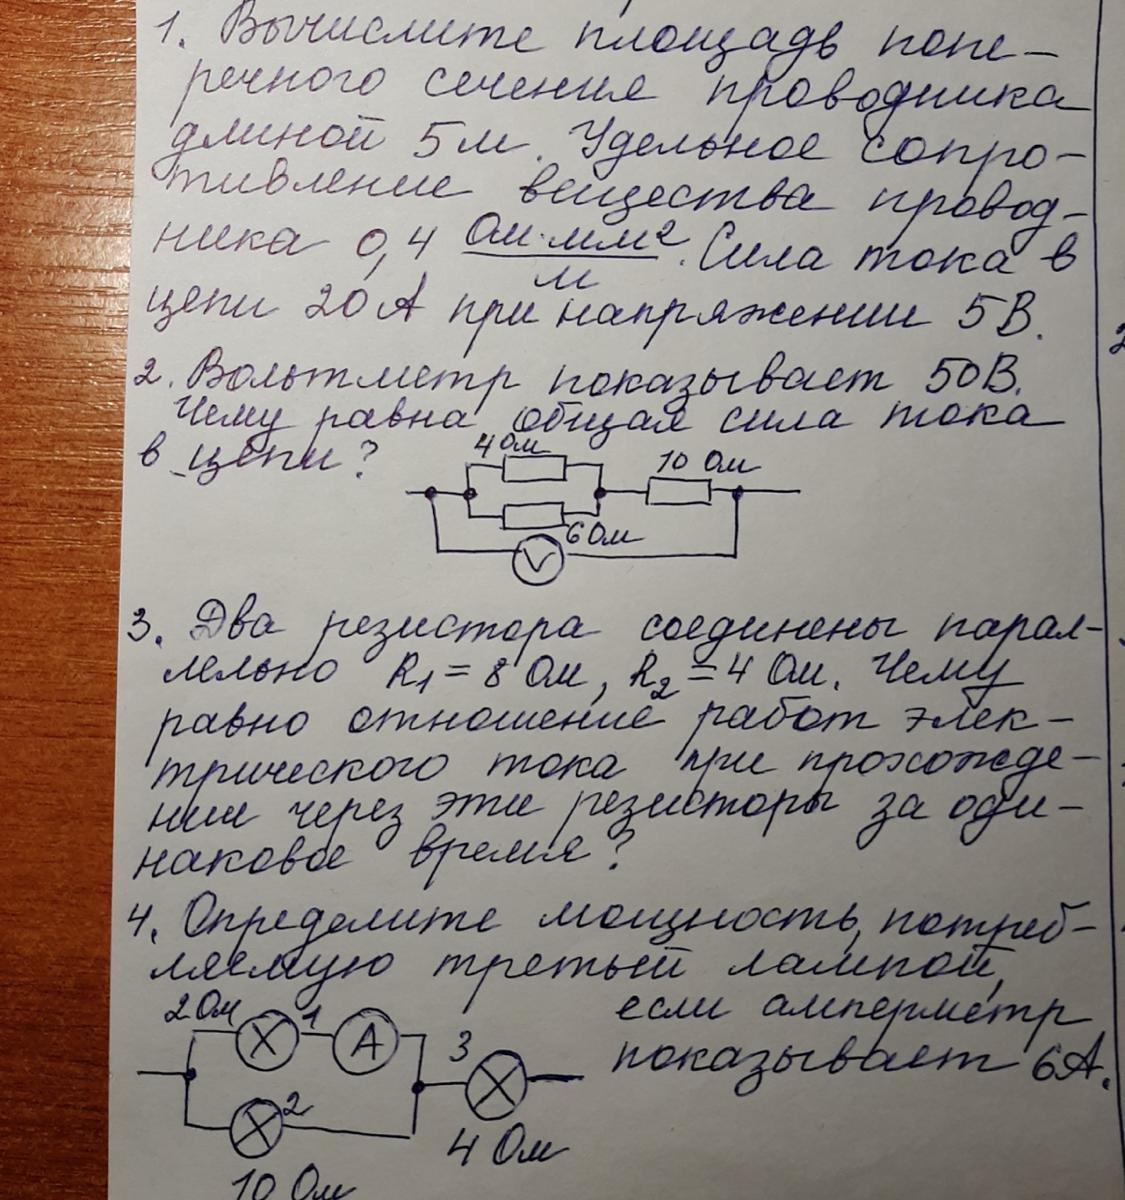 1. Вычислите площадь попе-
речного сечения проводника
длиной 5м. Удельное сопро-
тивление вещества провод-
ника 0,4 Ом·мм²/м. Сила тока в
цепи 20А при напряжении 5В.
2. Вольтметр показывает 50В.
Чему равна общая сила тока
в цепи?
4 Ом
10 Ом
6 Ом
V
3. Два резистора соединены парал-
лельно R₁ = 8 Ом, R₂ = 4 Ом. Чему
равно отношение работ элек-
трического тока при прохожде-
нии через эти резисторы за оди-
наковое время?
4. Определите мощность, потреб-
ляемую третьей лампой,
если амперметр
показывает 6А.
2 Ом
1
A
3
2
4 Ом
10 Ом
2